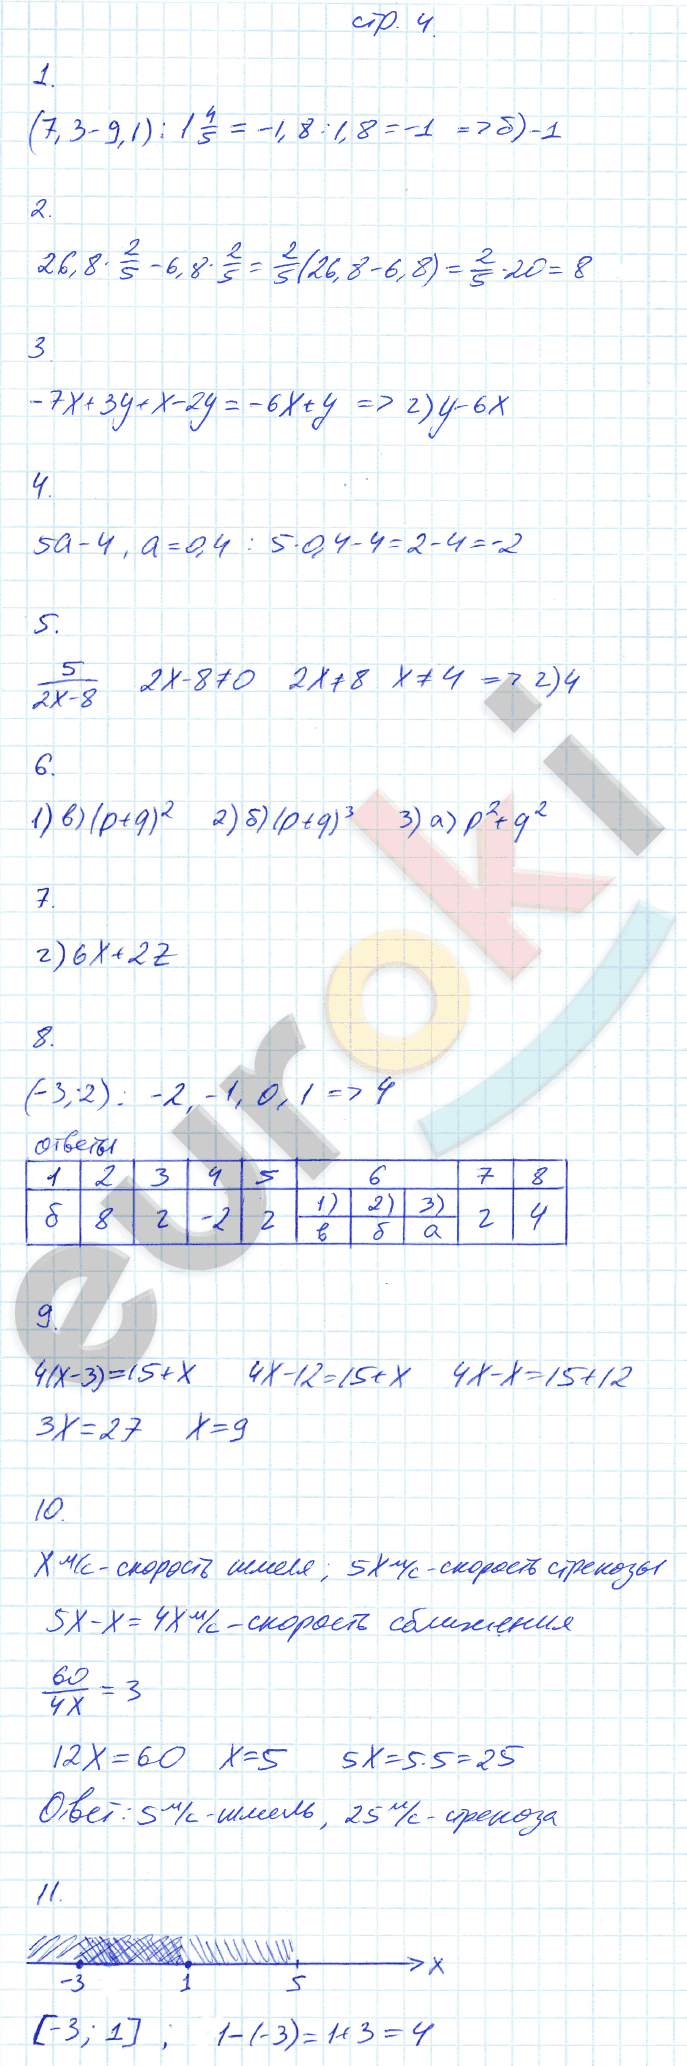 стр. 4.
1.
(7,3-9,1) : 1 4/5 = -1,8 : 1,8 = -1 => б) -1
2.
26,8 · 2/5 - 6,8 · 2/5 = 2/5 (26,8 - 6,8) = 2/5 · 20 = 8
3
-7x+3y+x-2y = -6x+y => г) y-6x
4.
5a-4, a=0,4 : 5·0,4-4=2-4=-2
5.
5/(2x-8) 2x-8≠0 2x≠8 x≠4 => г) 4
6.
1) в) (p+q)² 2) б) (p+q)³ 3) а) p²+q²
7.
г) 6x+2z
8.
(-3;2): -2, -1, 0, 1 => 4
ответы
1 2 3 4 5 6 7 8
б 8 г -2 г 1) 2) 3) г 4
в б а
9.
4(x-3)=15+x 4x-12=15+x 4x-x=15+12
3x=27 x=9
10.
x м/с - скорость шмеля; 5x м/с - скорость стрекозы
5x-x=4x м/с - скорость сближения
60/4x = 3
12x=60 x=5 5x=5·5=25
Ответ: 5 м/с - шмель, 25 м/с - стрекоза
11.
-3 1 5 x
[-3; 1] ; 1-(-3)=1+3=4
euroki